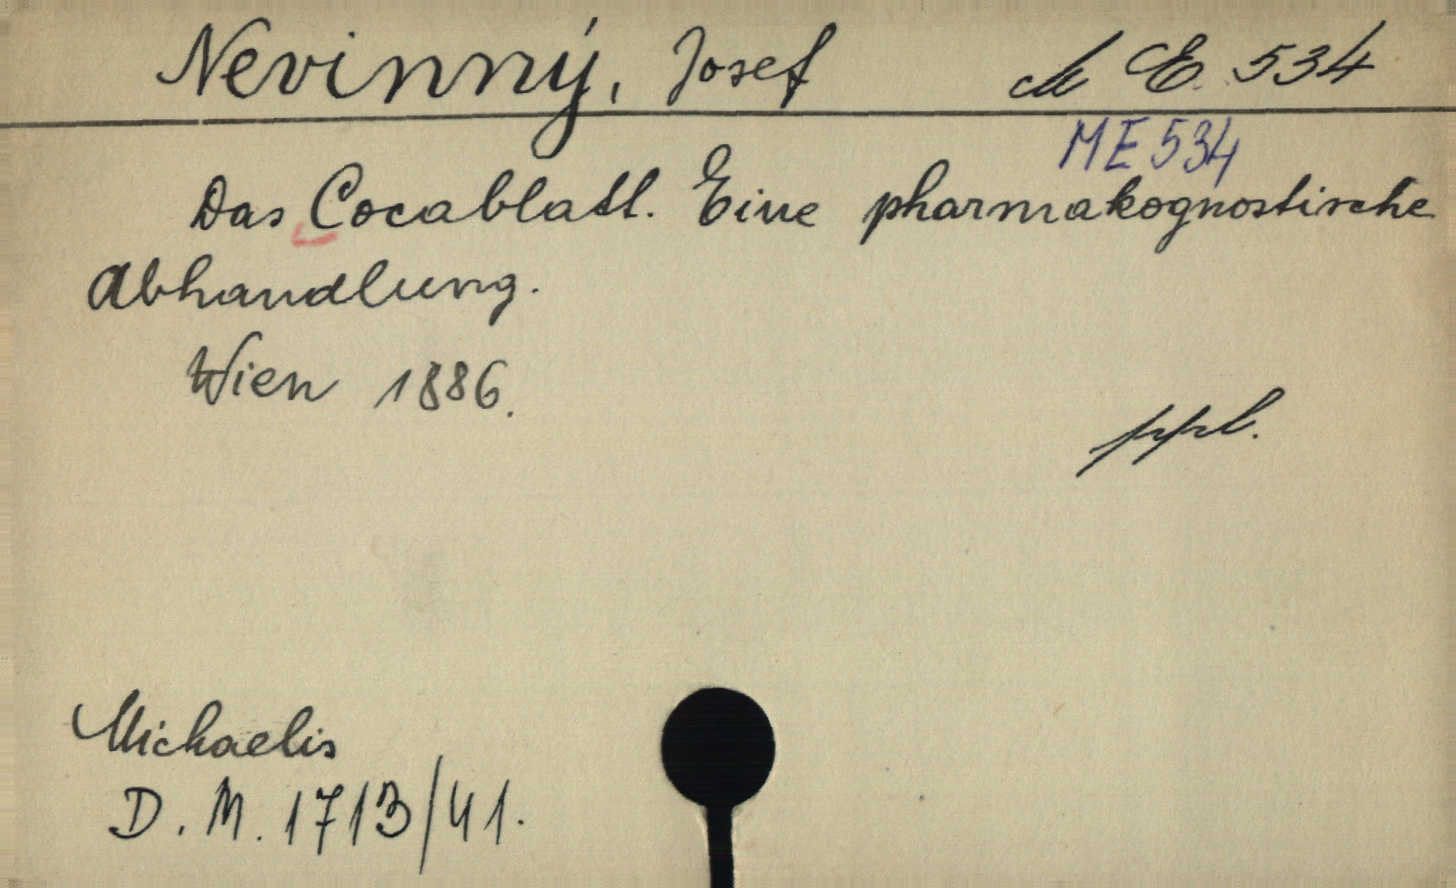 Nevinný, Josef M E. 534
ME 534
Das Cocablatt. Eine pharmakognostische
Abhandlung.
Wien 1886.
ppl.
Michaelis
D. M. 1713/41.